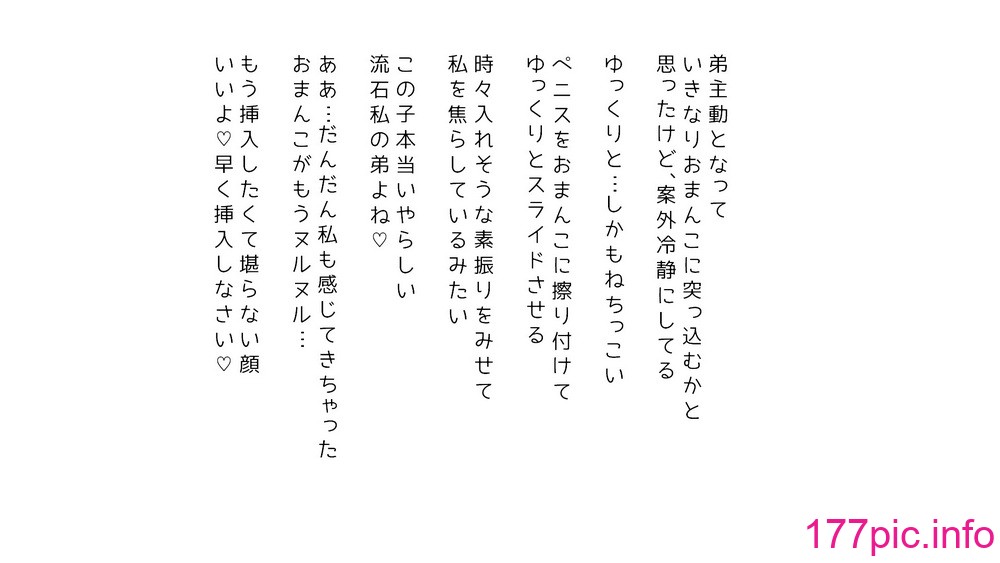 弟主動となって
いきなりおまんこに突っ込むかと
思ったけど、案外冷静にしてる
ゆっくりと…しかもねちっこい
ペニスをおまんこに擦り付けて
ゆっくりとスライドさせる
時々入れそうな素振りをみせて
私を焦らしているみたい
この子本当いやらしい
流石私の弟よね♡
ああ…だんだん私も感じてきちゃった
おまんこがもうヌルヌル…
もう挿入したくて堪らない顔
いいよ♡早く挿入しなさい♡
177pic.info